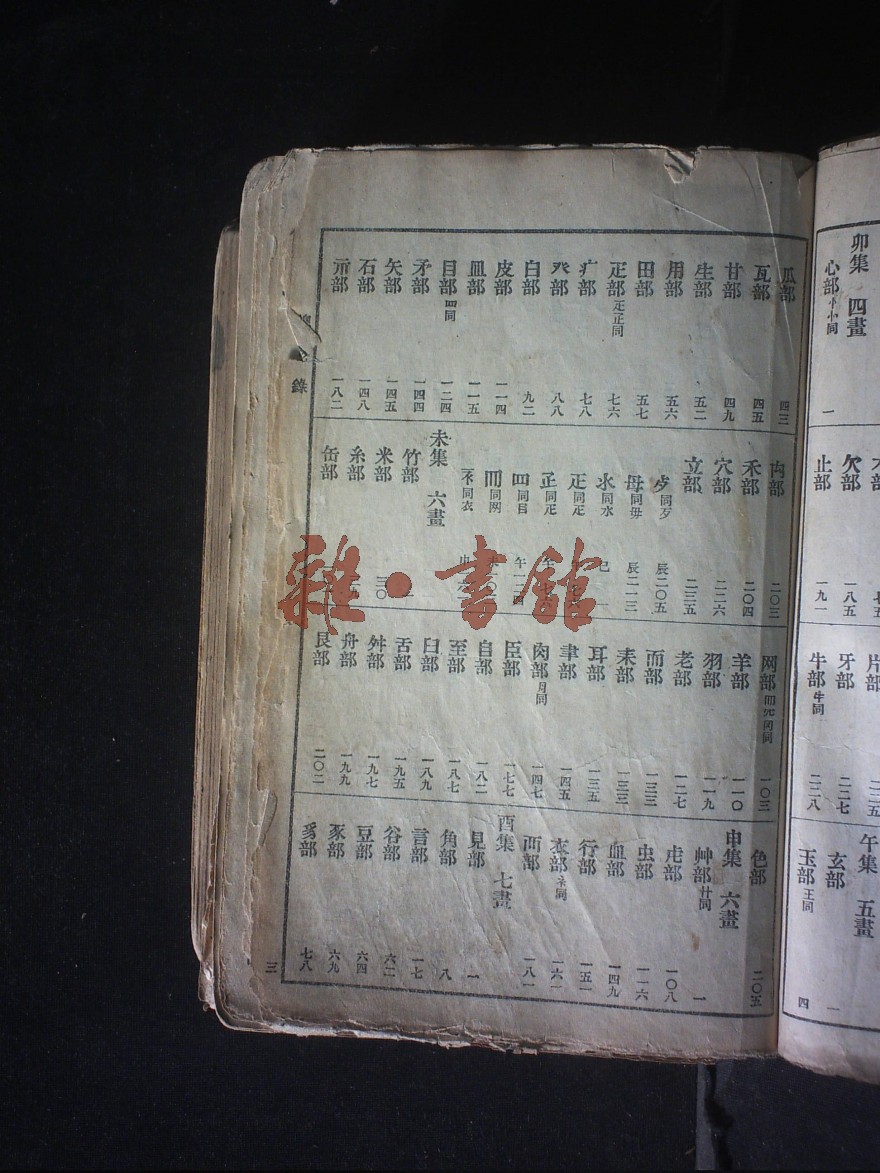 卯集　四畫
心部忄㣺同　一
欠部　一八五
止部　一九一
牙部　二二七
牛部牜同　二二八
午集　五畫
玄部　一
玉部王同　四
瓜部　四三
瓦部　四五
甘部　四九
生部　五二
用部　五六
田部　五七
疋部𤴔同　七六
疒部　七八
癶部　八八
白部　九二
皮部　一一四
皿部　一一五
目部罒同　一二四
矛部　一四四
矢部　一四五
石部　一四八
示部　一八二
禸部　二〇三
禾部　二〇四
穴部　二二六
立部　二三五
歺同歹　辰二〇五
母同毋　辰二一三
氺同水　巳
𤴔同疋
罒同目　午一二四
同网
衤同衣
未集　六畫
竹部
米部　三〇
糸部
缶部
网部　一〇三
羊部　一一〇
羽部　一一九
老部　一二七
而部　一三三
耒部　一三三
耳部　一三五
聿部　一四五
肉部月同　一四七
臣部　一七七
自部　一八二
至部　一八七
臼部　一八九
舌部　一九五
舛部　一九七
舟部　一九九
艮部　二〇二
色部　二〇五
申集　六畫
艸部艹同　一
虍部　一〇八
虫部　一一六
血部　一四九
行部　一五一
衣部衤同　一六一
襾部　一八一
酉集　七畫
見部　一
角部　八
言部　一七
谷部　六二
豆部　六四
豕部　六九
豸部　七八
錄
三
雜·書館